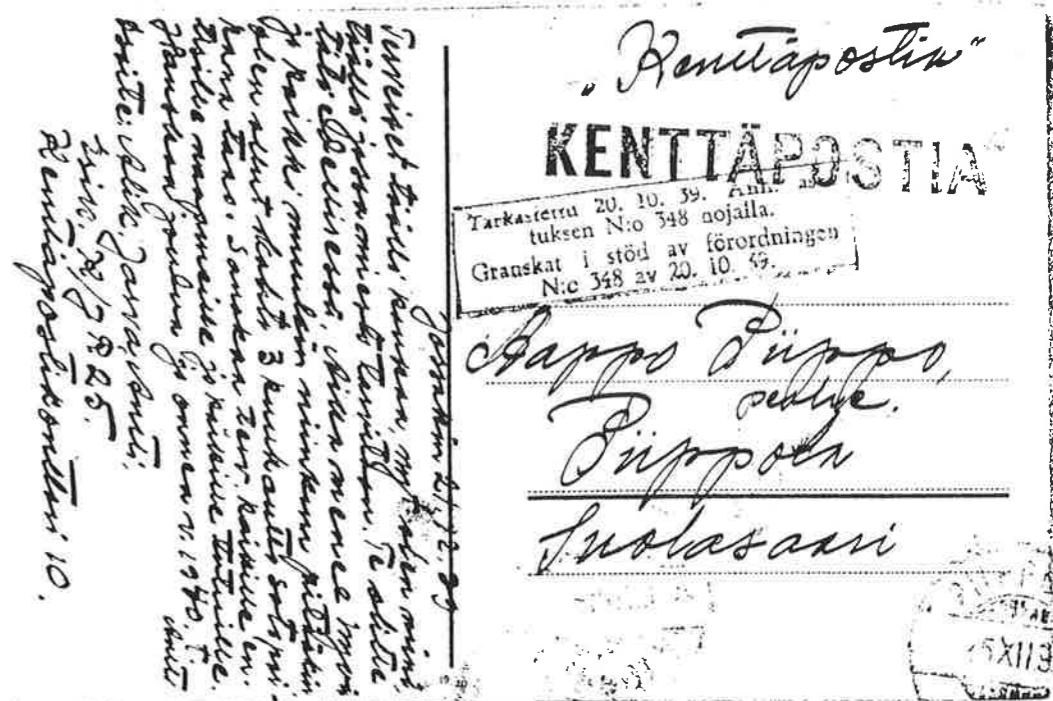 „Kenttäpostia"
KENTTÄPOSTIA
Tarkastettu 20. 10. 39.
tuksen N:o 348 nojalla.
Granskat i stöd av förordningen
N:o 348 av 20. 10. 39.
Aappo Piippo,
Piippola
Suolasaari
XII 3
Jossakin 21/12.39
Terveiset täältä kaukaa nyt olen minä
täällä jossa monesti Te olitte
Aika menee
ja kaikki muukin niinkuin pitääkin
olen ollut kohta 3 kuukautta
kana taas. Sanokaa terv kaikille en-
naapureille ja kaikille tutuille.
Hauskaa joulua ja onnea v. 1940. T.
Antti
Osoite: Alik. Jarva, Antti.
25.
Kenttäpostikonttori 10.